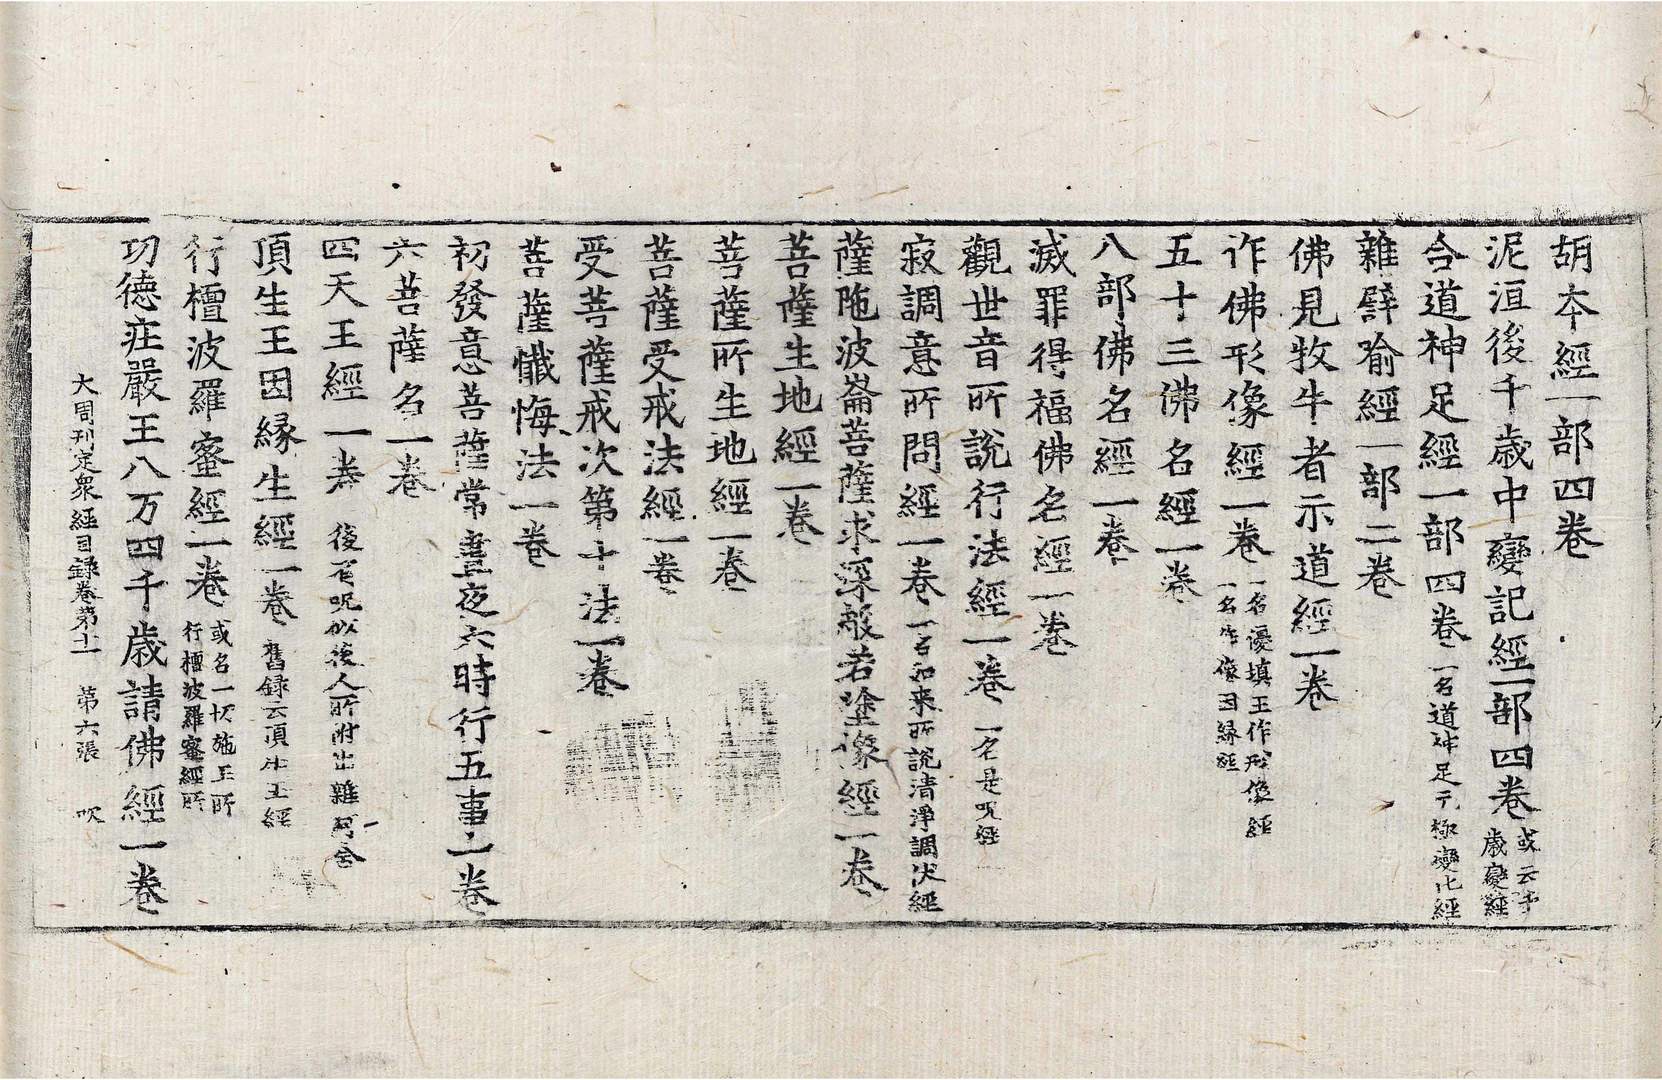 胡本經一部四卷
泥洹後千歲中變記經一部四卷 或云千歲變經
合道神足經一部四卷 一名道神足无極變化經
雜譬喻經一部二卷
佛見牧牛者示道經一卷
作佛形像經一卷 一名優填王作形像經一名作像因緣經
五十三佛名經一卷
八部佛名經一卷
滅罪得福佛名經一卷
觀世音所說行法經一卷 一名是呪經
寂調意所問經一卷 一名如来所說清淨調伏經
薩陁波崙菩薩求深般若塗像經一卷
菩薩生地經一卷
菩薩所生地經一卷
菩薩受戒法經一卷
受菩薩戒次第十法一卷
菩薩懺悔法一卷
初發意菩薩常晝夜六時行五事一卷
六菩薩名一卷
四天王經一卷 後有呪似後人所附出雜阿含
頂生王因緣生經一卷 舊録云頂生王經
行檀波羅蜜經一卷 或名一切施王所行檀波羅蜜經所
功德莊嚴王八万四千歲請佛經一卷
大周刊定衆經目録卷第十一 第六張 吹